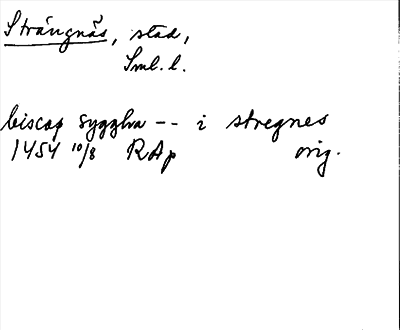 Strängnäs, stad,
Sml. l.
biscop sygghva -- i stregnes
1454 10/8 RAp orig.